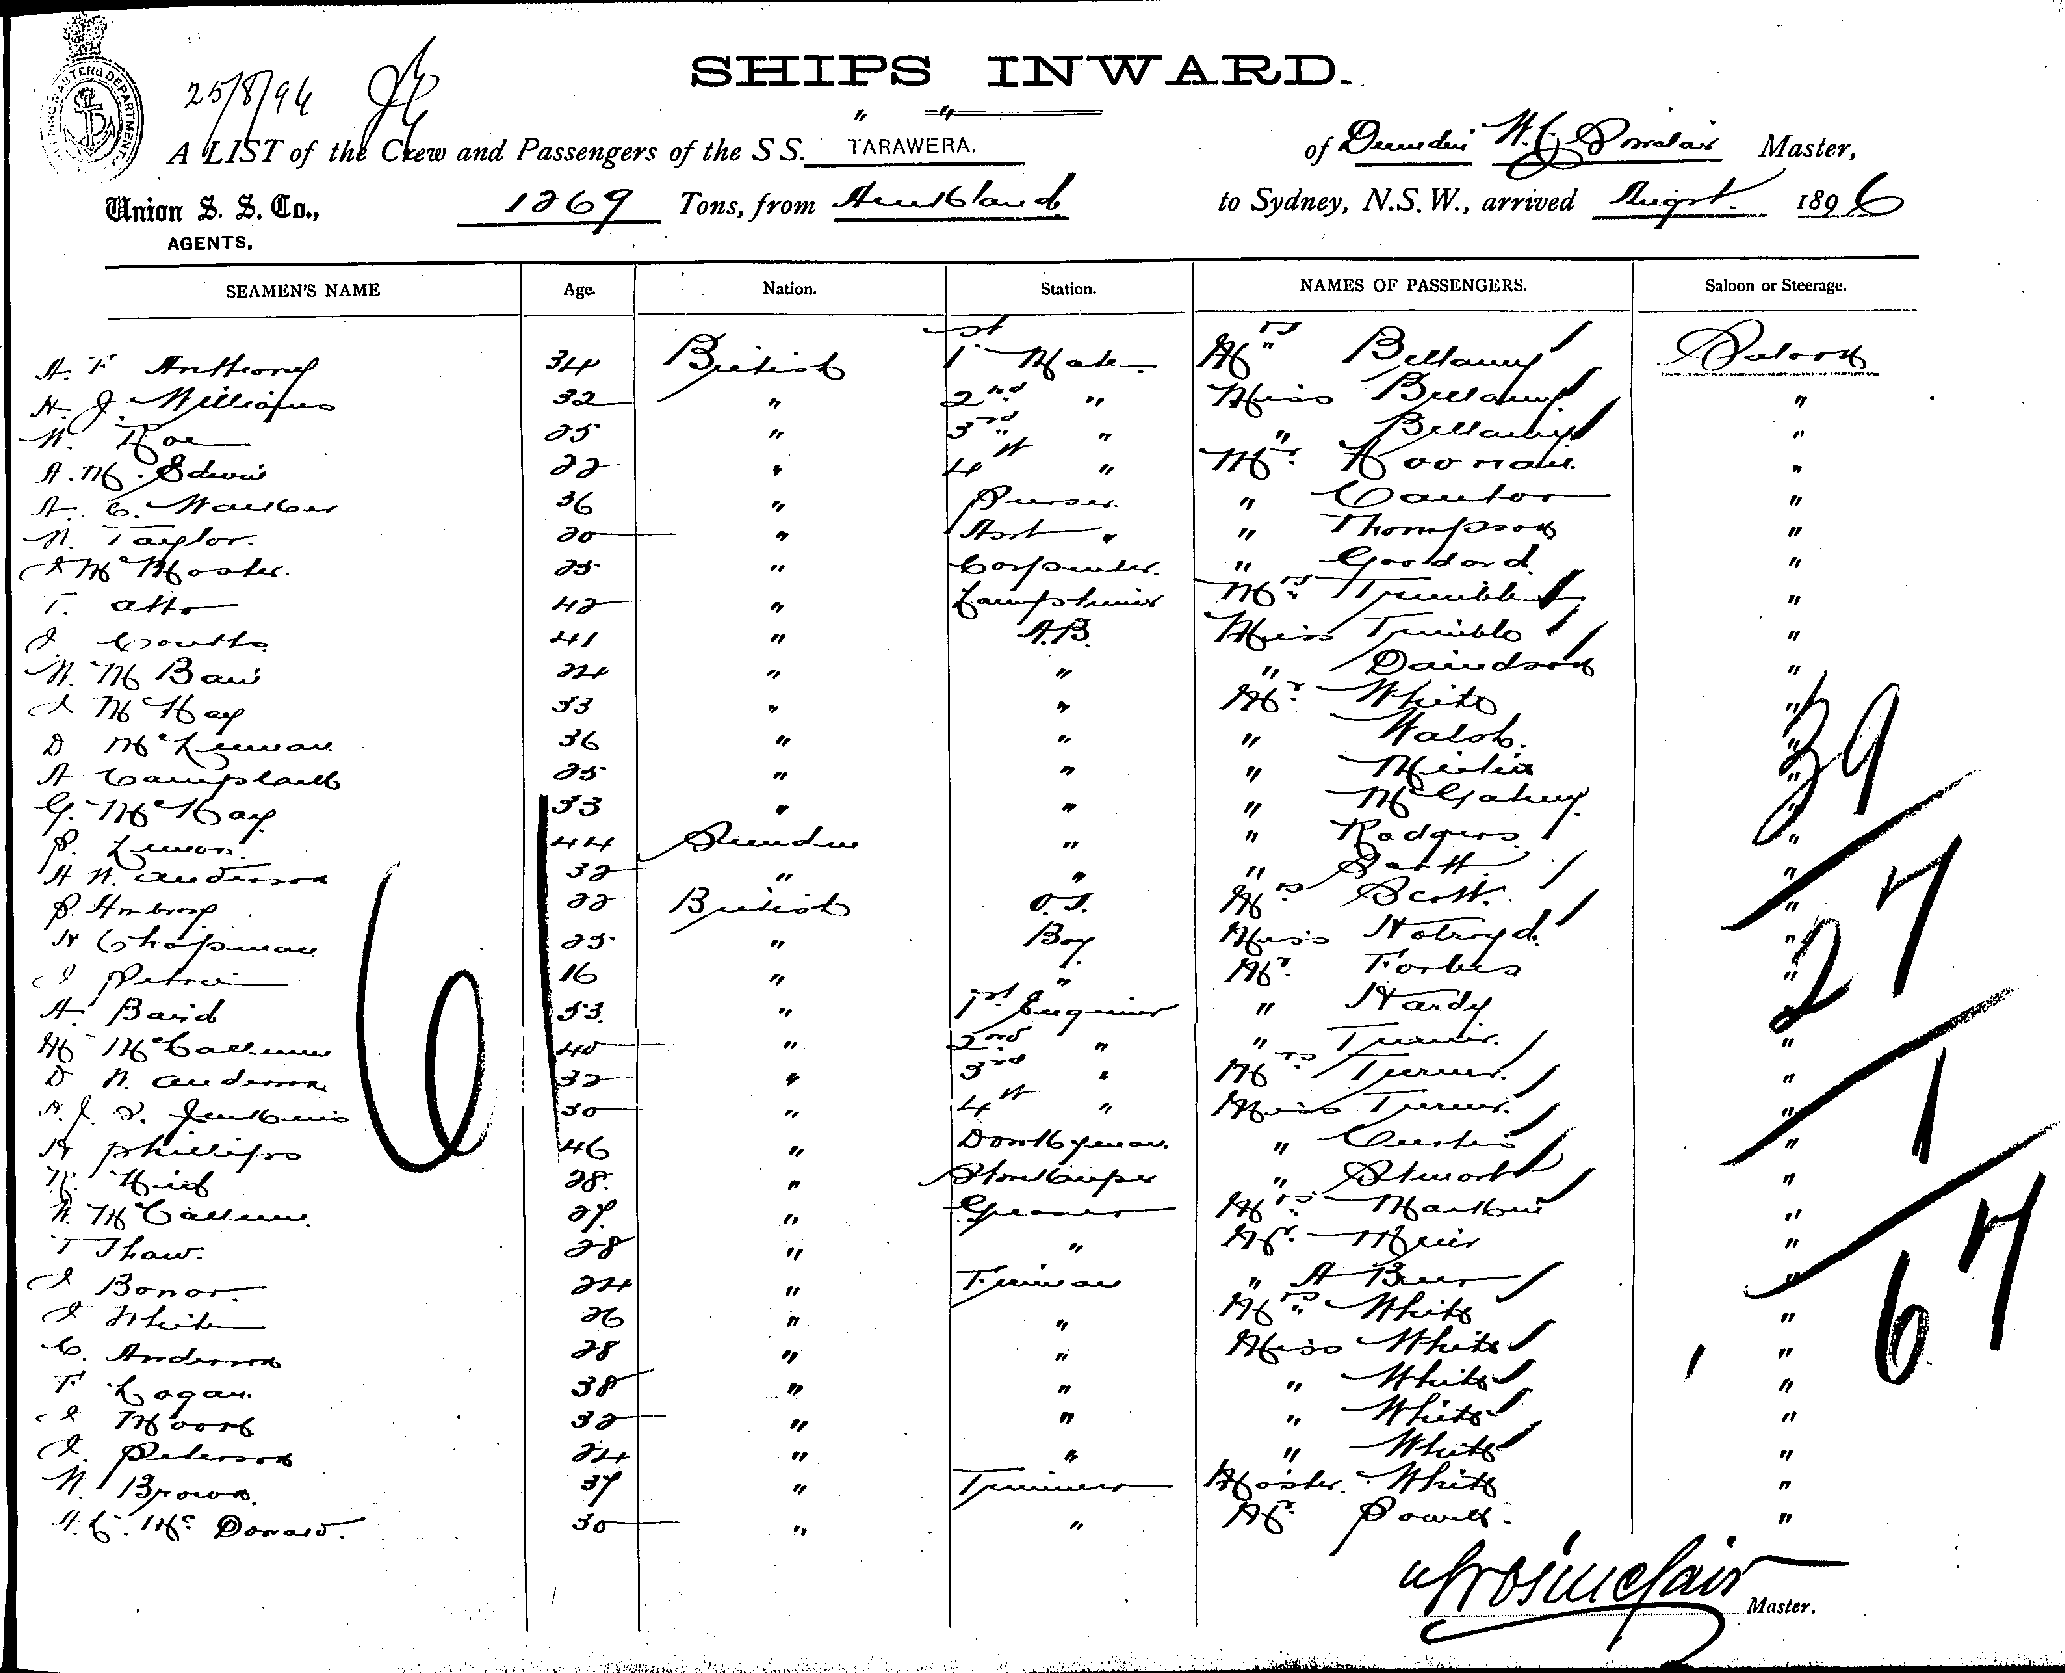 25/8/96
SHIPS INWARD.
" "
A LIST of the Crew and Passengers of the SS. TARAWERA. of Dunedin W. C. Sinclair Master,
Union S. S. Co., 1269 Tons, from Auckland to Sydney, N.S.W., arrived August 1896
AGENTS.
SEAMEN'S NAME Age. Nation. Station. NAMES OF PASSENGERS. Saloon or Steerage.
A. F Anthony 34 British 1st Mate. Mrs Bellamy Saloon
H. J. Williams 32 " 2nd " Miss Bellamy "
W. Rae 25 " 3rd " " Bellamy "
A. M. Edwin 22 " 4th " Mr. Noonan "
A. C. Walker 36 " Purser. " Cantor "
W. Taylor. 20 " Asst " " Thompson "
25 " Carpenter. " Goddard "
T. 42 " Lamptrimmer Mrs Trimble "
J. Coutts 41 " A.B. Miss Trimble "
W. M Bain 24 " " " Davidson "
J McKay 33 " " Mr. White "
D McLennan 36 " " " Walsh. "
A Campbell 25 " " " "
G. McKay 33 " " " McGahey. "
44 " " Rodgers "
A W. Anderson 32 " " " Scott "
P. Ambrose 22 British O.S. Mrs Scott. "
H Chapman 25 " Boy Miss Holroyd. "
J 16 " " Mr. Forbes "
A. Baird 53. " 1st Engineer " Hardy "
M McCallum 40 " 2nd " " Turner. "
D W. Anderson 32 " 3rd " Mrs Turner. "
A. J. S. Jenkins 30 " 4th " Miss Turner. "
H Phillips 46 " Donkeyman. " Curtis "
28. " Storekeeper " "
W. McCallum. 27. " Greaser Mrs "
T Shaw. 28 " " Mr. Muir "
J Bonar. 24 " Fireman " A "
J White 26 " " Mrs White "
C. Anderson 28 " " Miss White "
F Logan. 38 " " " White "
J Moore 32 " " " White "
J. Peterson 24 " " " White "
W. Brown. 37 " Trimmer Master. White "
A. C. McDonald. 30 " " Mr. Powell. "
6
39
27
1
67
W C Sinclair
Master.